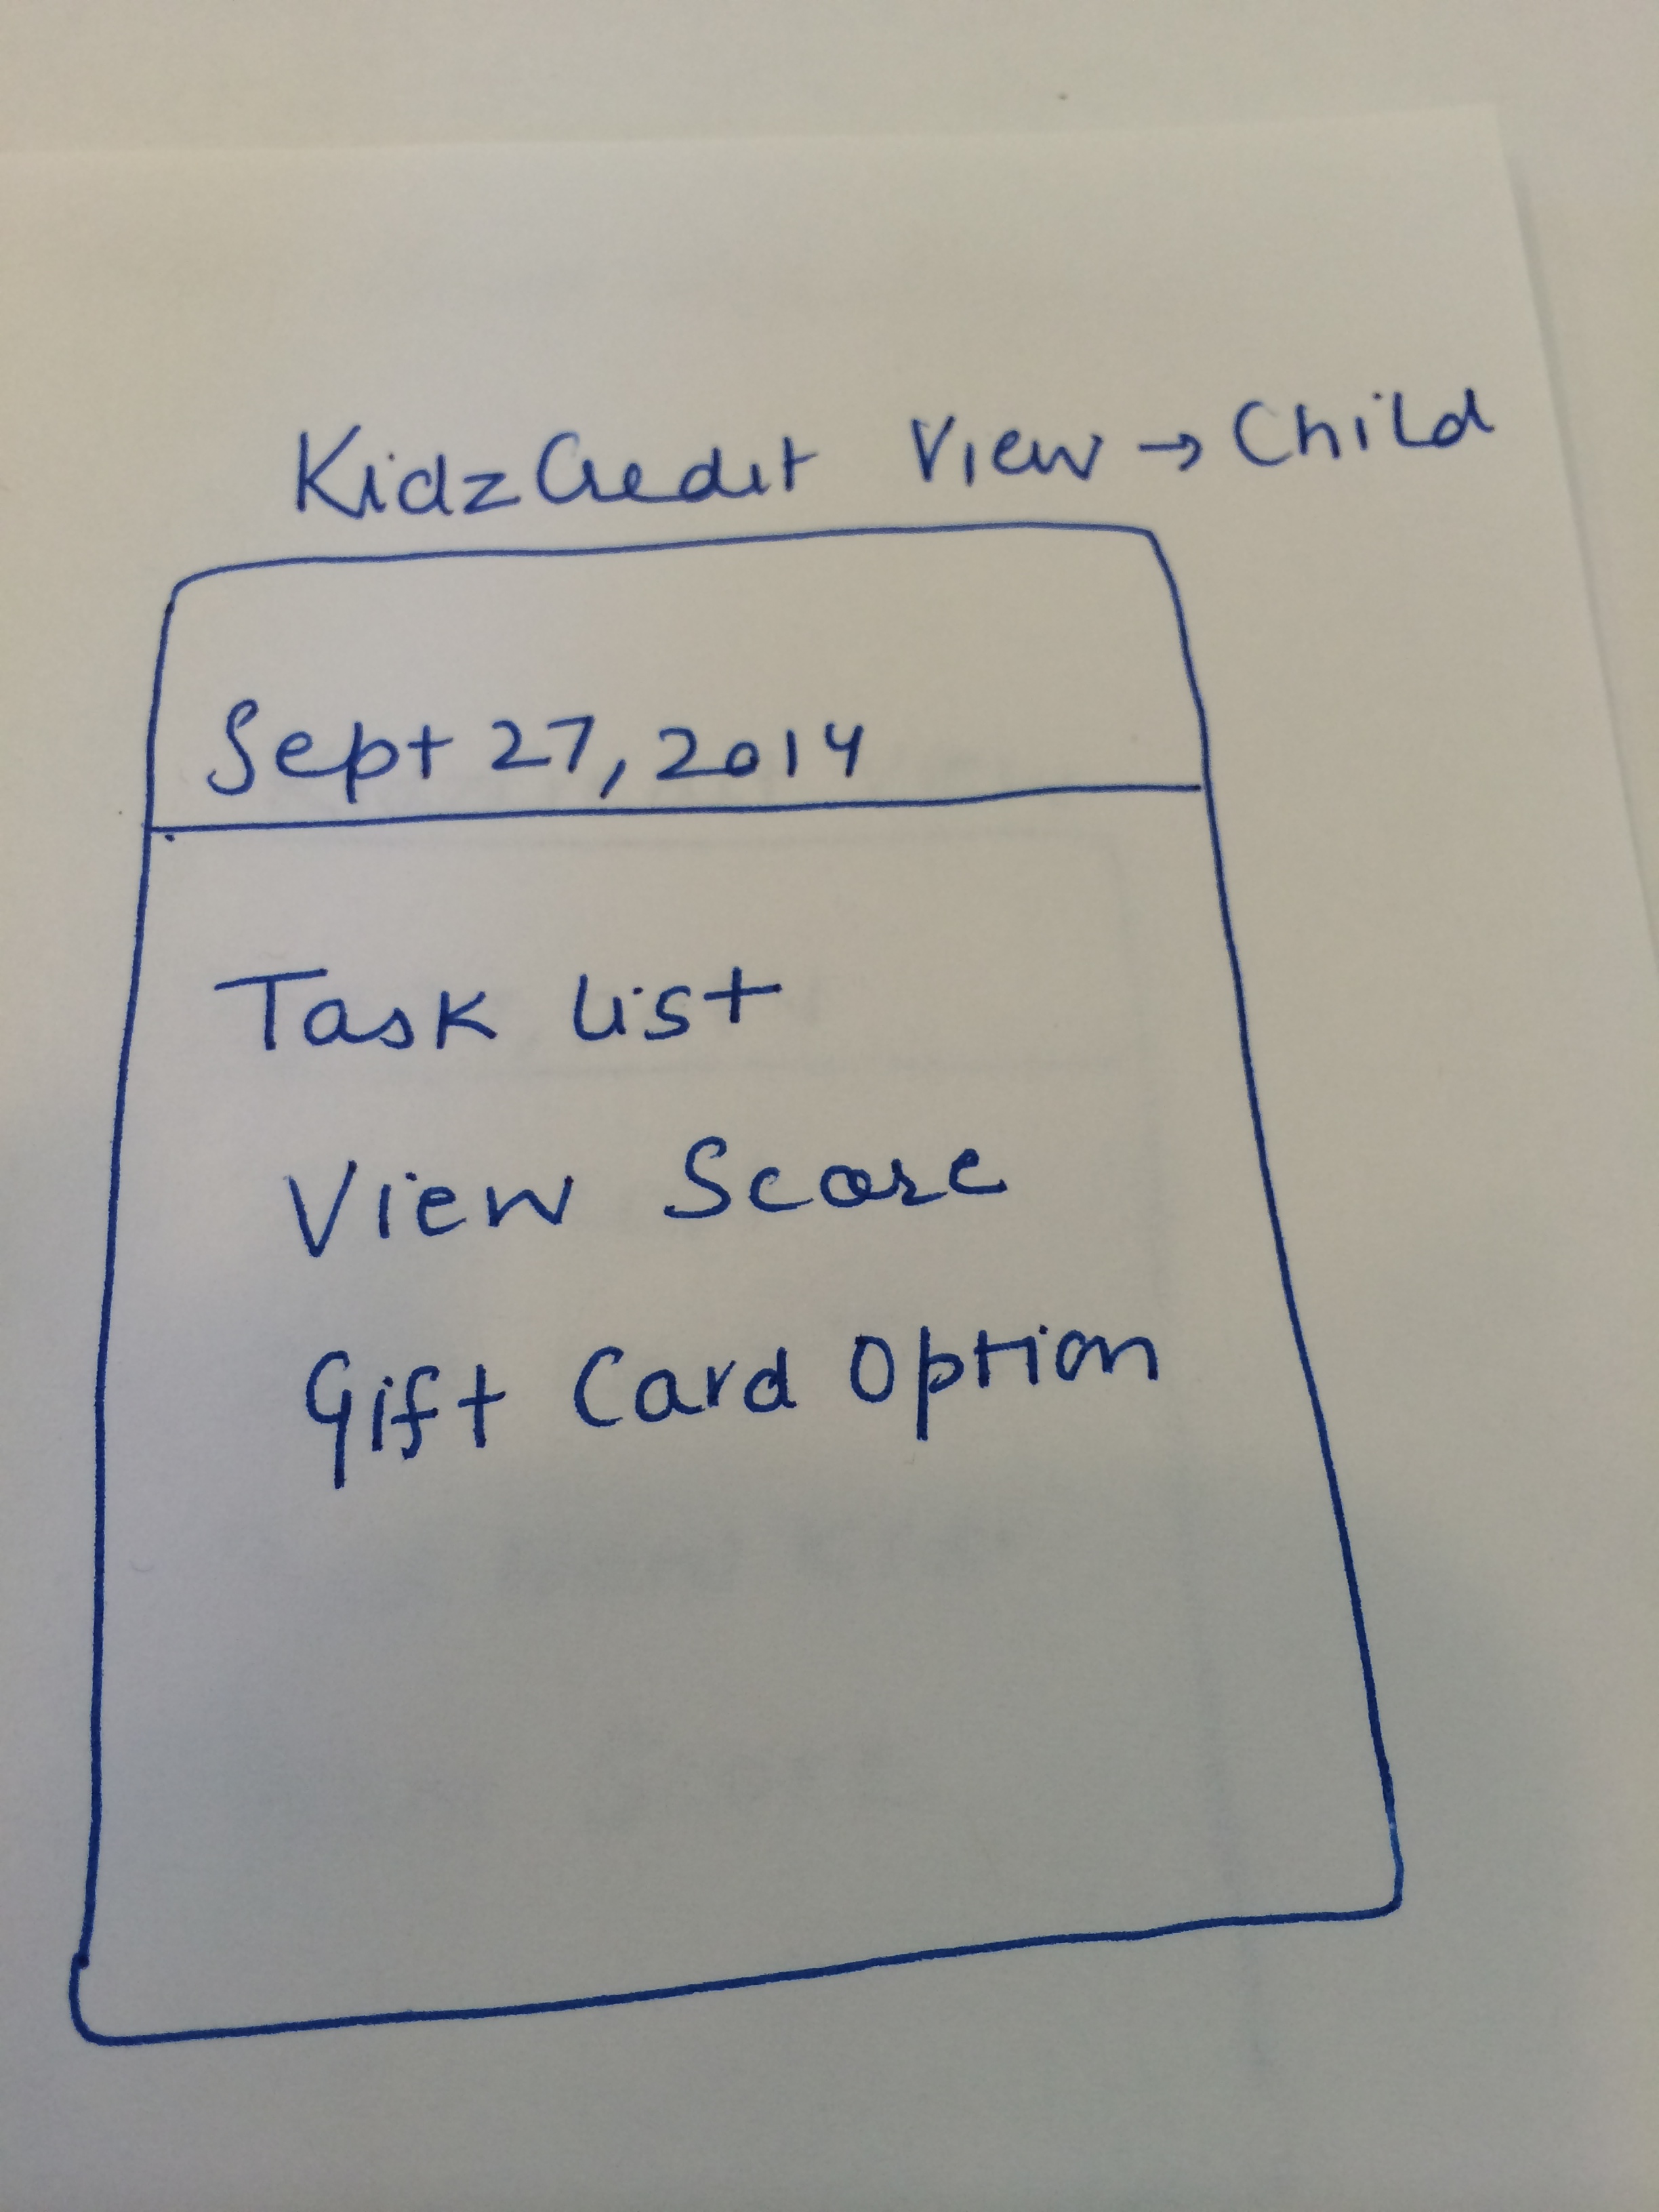 KidzCredit View → Child
Sept 27, 2014
Task List
View Score
Gift Card Option